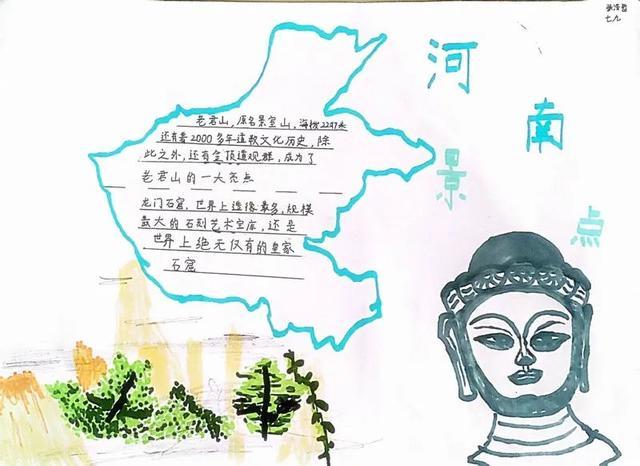 张洺哲
七九
河
南
景
点
老君山，原名景室山，海拔2217米
还有着2000多年道教文化历史，除
此之外，还有金顶道观群，成为了
老君山的一大亮点
龙门石窟，世界上造像最多，规模
最大的石刻艺术宝库，还是
世界上绝无仅有的皇家
石窟